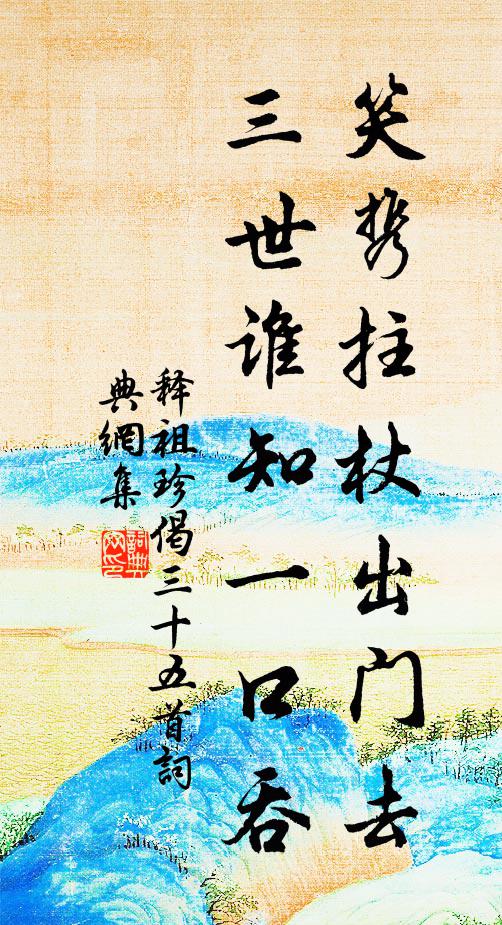 笑携拄杖出门去
三世谁知一口吞
释祖珍偈三十五首词
典網集
詞典